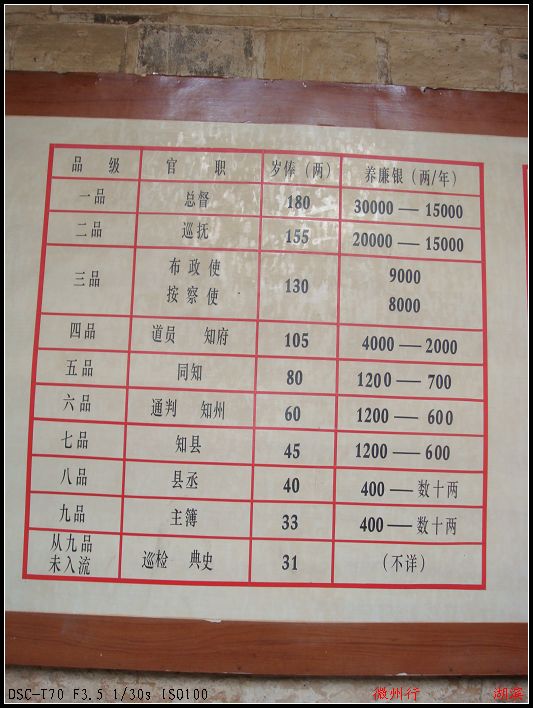 品 级 官 职 岁俸(两) 养廉银(两/年)
一品 总督 180 30000 — 15000
二品 巡抚 155 20000 — 15000
三品 布政使 130 9000
按察使 8000
四品 道员 知府 105 4000 — 2000
五品 同知 80 1200 — 700
六品 通判 知州 60 1200 — 600
七品 知县 45 1200 — 600
八品 县丞 40 400 — 数十两
九品 主簿 33 400 — 数十两
从九品
未入流 巡检 典史 31 (不详)
DSC-T70 F3.5 1/30s ISO100 徽州行 湖滨